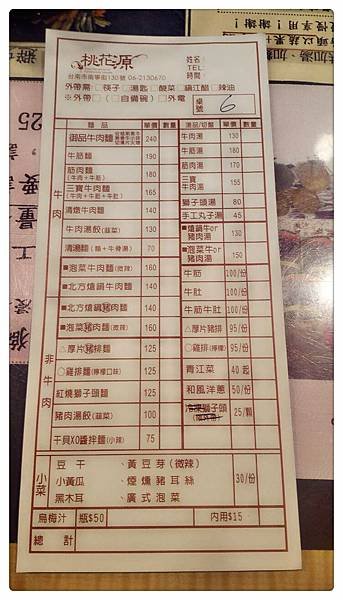 桃花源
台南市南寧街130號 06-2130670
姓名:
TEL:
時間:
外帶需:□筷子□湯匙□酸菜□鎮江醋□辣油
※外帶□(□自備碗) □外電
桌號 6
麵品 單價 數量
御品牛肉麵 240
牛筋麵 190
筋肉麵 (牛肉+牛筋) 180
三寶牛肉麵 (牛肉+牛筋+牛肚) 165
清燉牛肉麵 140
牛肉湯餃(韭菜) 130
清湯麵(麵+牛骨湯) 70
■泡菜牛肉麵(微辣) 160
■北方熗鍋牛肉麵 140
■北方熗鍋豬肉麵 140
■泡菜豬肉麵(微辣) 160
△厚片豬排麵 125
○雞排麵(檸檬口味) 125
紅燒獅子頭麵 125
豬肉湯餃(韭菜) 100
干貝XO醬拌麵(小辣) 75
牛肉
非牛肉
湯品/切盤 單價 數量
牛肉湯 130
牛筋湯 180
筋肉湯 170
三寶牛肉湯 155
獅子頭湯 80
手工丸子湯 45
■熗鍋牛or豬肉湯 130
■泡菜牛or豬肉湯 150
牛筋 100/份
牛肚 100/份
牛筋牛肚 100/份
△厚片豬排 95/份
○雞排(檸檬) 95/份
青江菜 40起
和風洋蔥 50/份
冷凍獅子頭 25/顆
小菜
豆干、黃豆芽(微辣)
小黃瓜、煙燻豬耳絲
黑木耳、廣式泡菜
30/份
烏梅汁 瓶$50 內用$15
總計